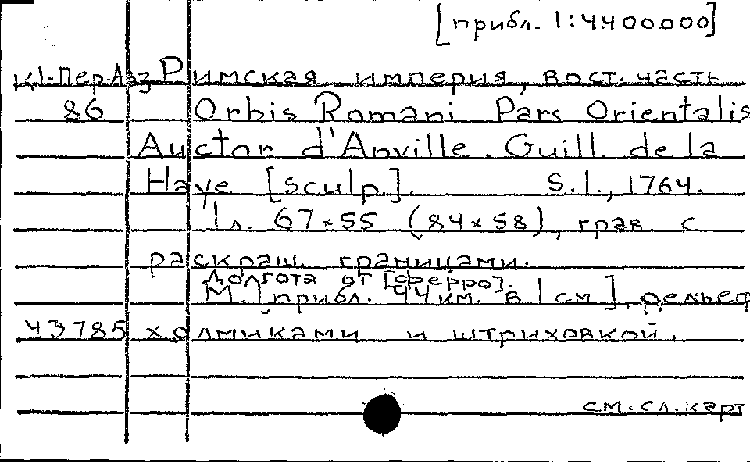 [прибл. 1:4400000]
К1-Пер-Аз3 Римская империя, вост. часть
86 Orbis Romani Pars Orientalis
Auctor d'Anville. Guill. de la
Haye [sculp]. S.l., 1764.
1 л. 67×55 (84×58), грав. с
раскраш. границами.
Долгота от [Ферро].
М. [прибл. 44 км. в 1 см], рельеф
43785 холмиками и штриховкой.
см. сл. карт